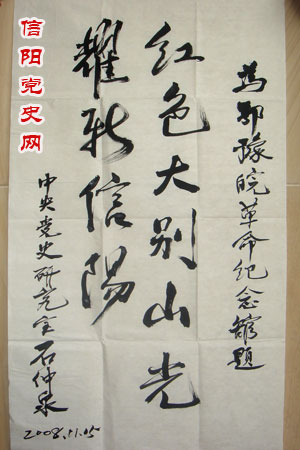 为鄂豫皖革命纪念館题
红色大别山光
耀新信陽
中央党史研究室石仲泉
2008.11.15
信阳党史网